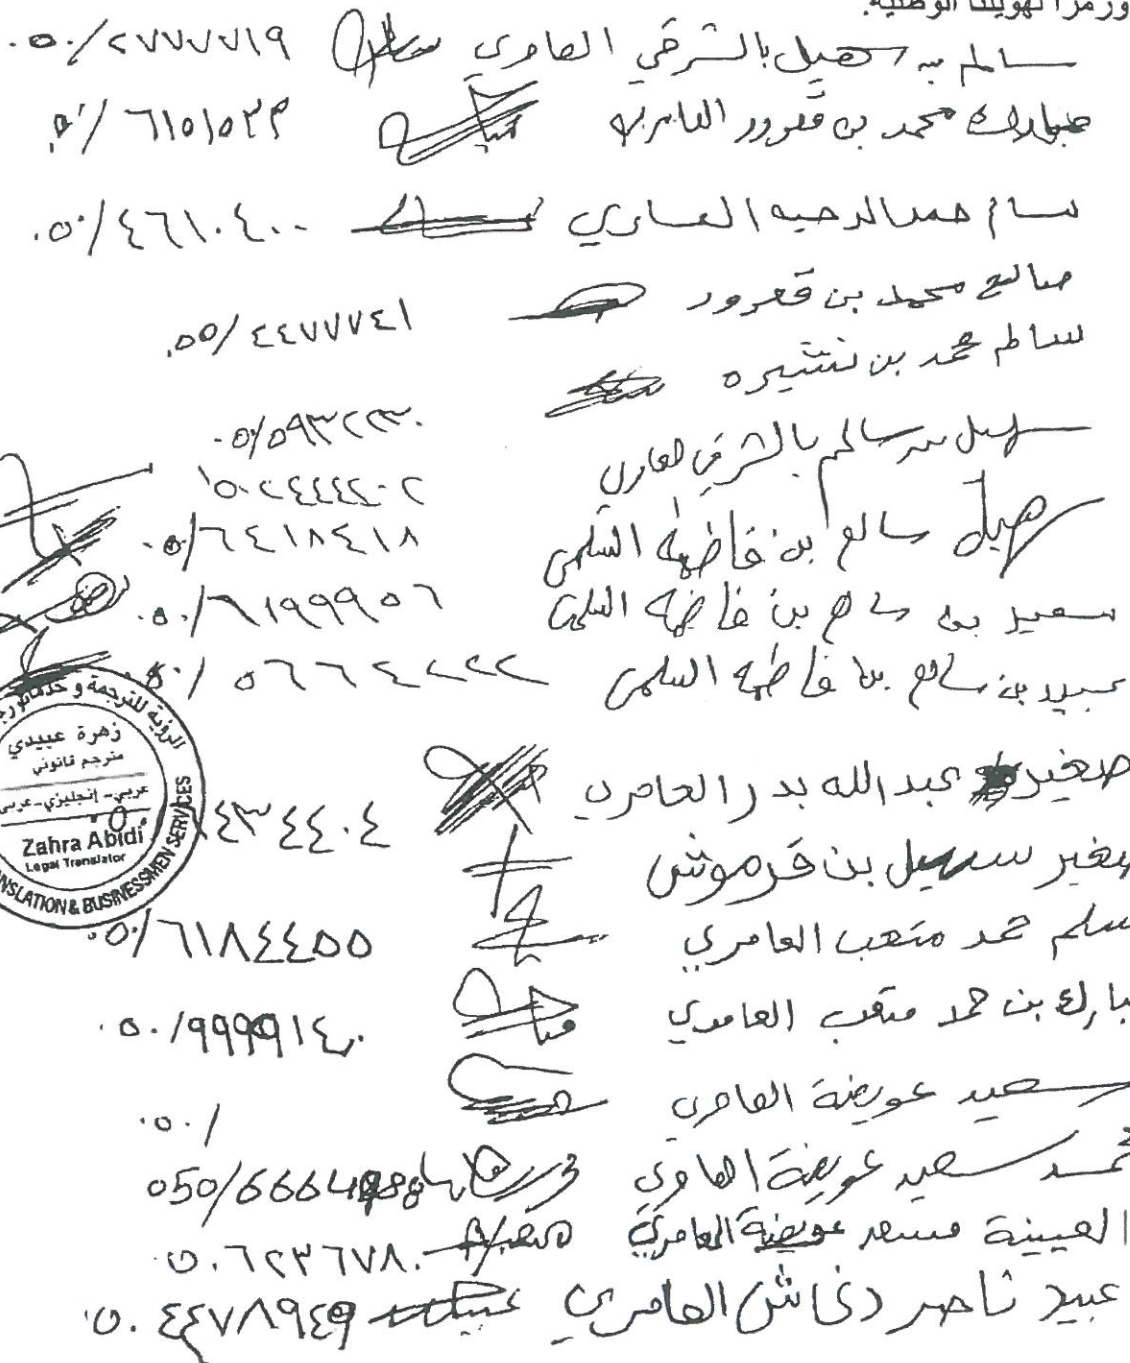 ورمزا لهويتنا الوطنية.
سالم بن سهيل بالشرقي العامري ٠٥٠/٢٧٧٧٧١٩
مبارك محمد بن قعرور العامري ٠٥٠/٦١٥١٥٣٣
سالم حمد العامري ٠٥٠/٤٦١٠٤٠٠
صالح محمد بن قعرور ٠٥٥/٤٤٧٧٧٤١
سالم محمد بن نشيره
٠٥٠/٥٩٣٢٢٣٠
سهيل بن سالم بالشرقي العامري ٠٥٠٢٤٤٤٤٠٢
سهيل سالم بن فاضل السلمي ٠٥٠/٦٤١٨٤١٨
سعيد بن سالم بن السلمي ٠٥٠/٦١٩٩٩٥٦
عبيد بن سالم بن السلمي ٠٥٠/٥٦٦٤٢٢٢
صغير عبدالله بدر العامري ٤٣٤٤٠٤
صغير سهيل بن قرموش
سلم حمد متعب العامري ٠٥٠/٦١٨٤٤٥٥
مبارك بن حمد متعب العامري ٠٥٠/٩٩٩٩١٤٠
سعيد عويضة العامري ٠٥٠/
محمد سعيد عويضة العامري 050/666
العيينة مسعد عويضة العامري ٠٥٠٦٢٣٦٧٨٠
عبيد ناصر دغاش العامري ٠٥٠٤٤٧٨٩٤٩
الرؤية للترجمة و خدمات
زهرة عبيدي
مترجم قانوني
عربي - إنجليزي - عربي
Zahra Abidi
Legal Translator
TRANSLATION & BUSINESSMEN SERVICES